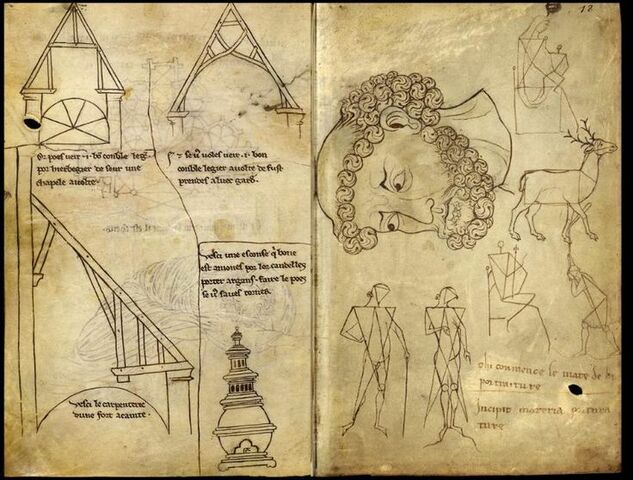 Or poes veir · i · bō conble legi
por herbegier de seur une
chapele avolte ·
⁊ se ū voles veir · i · bon
conble legier avolte de fust
prendes aluec gard ·
vesci une esconse q̄ bone
est amones por lor candelles
porter argans · faire le poes
se ū saves torner ·
vesci le carpenterie
dune fort acainte ·
18
chi commence le mate de la
portraiture
Incipit materia
ture